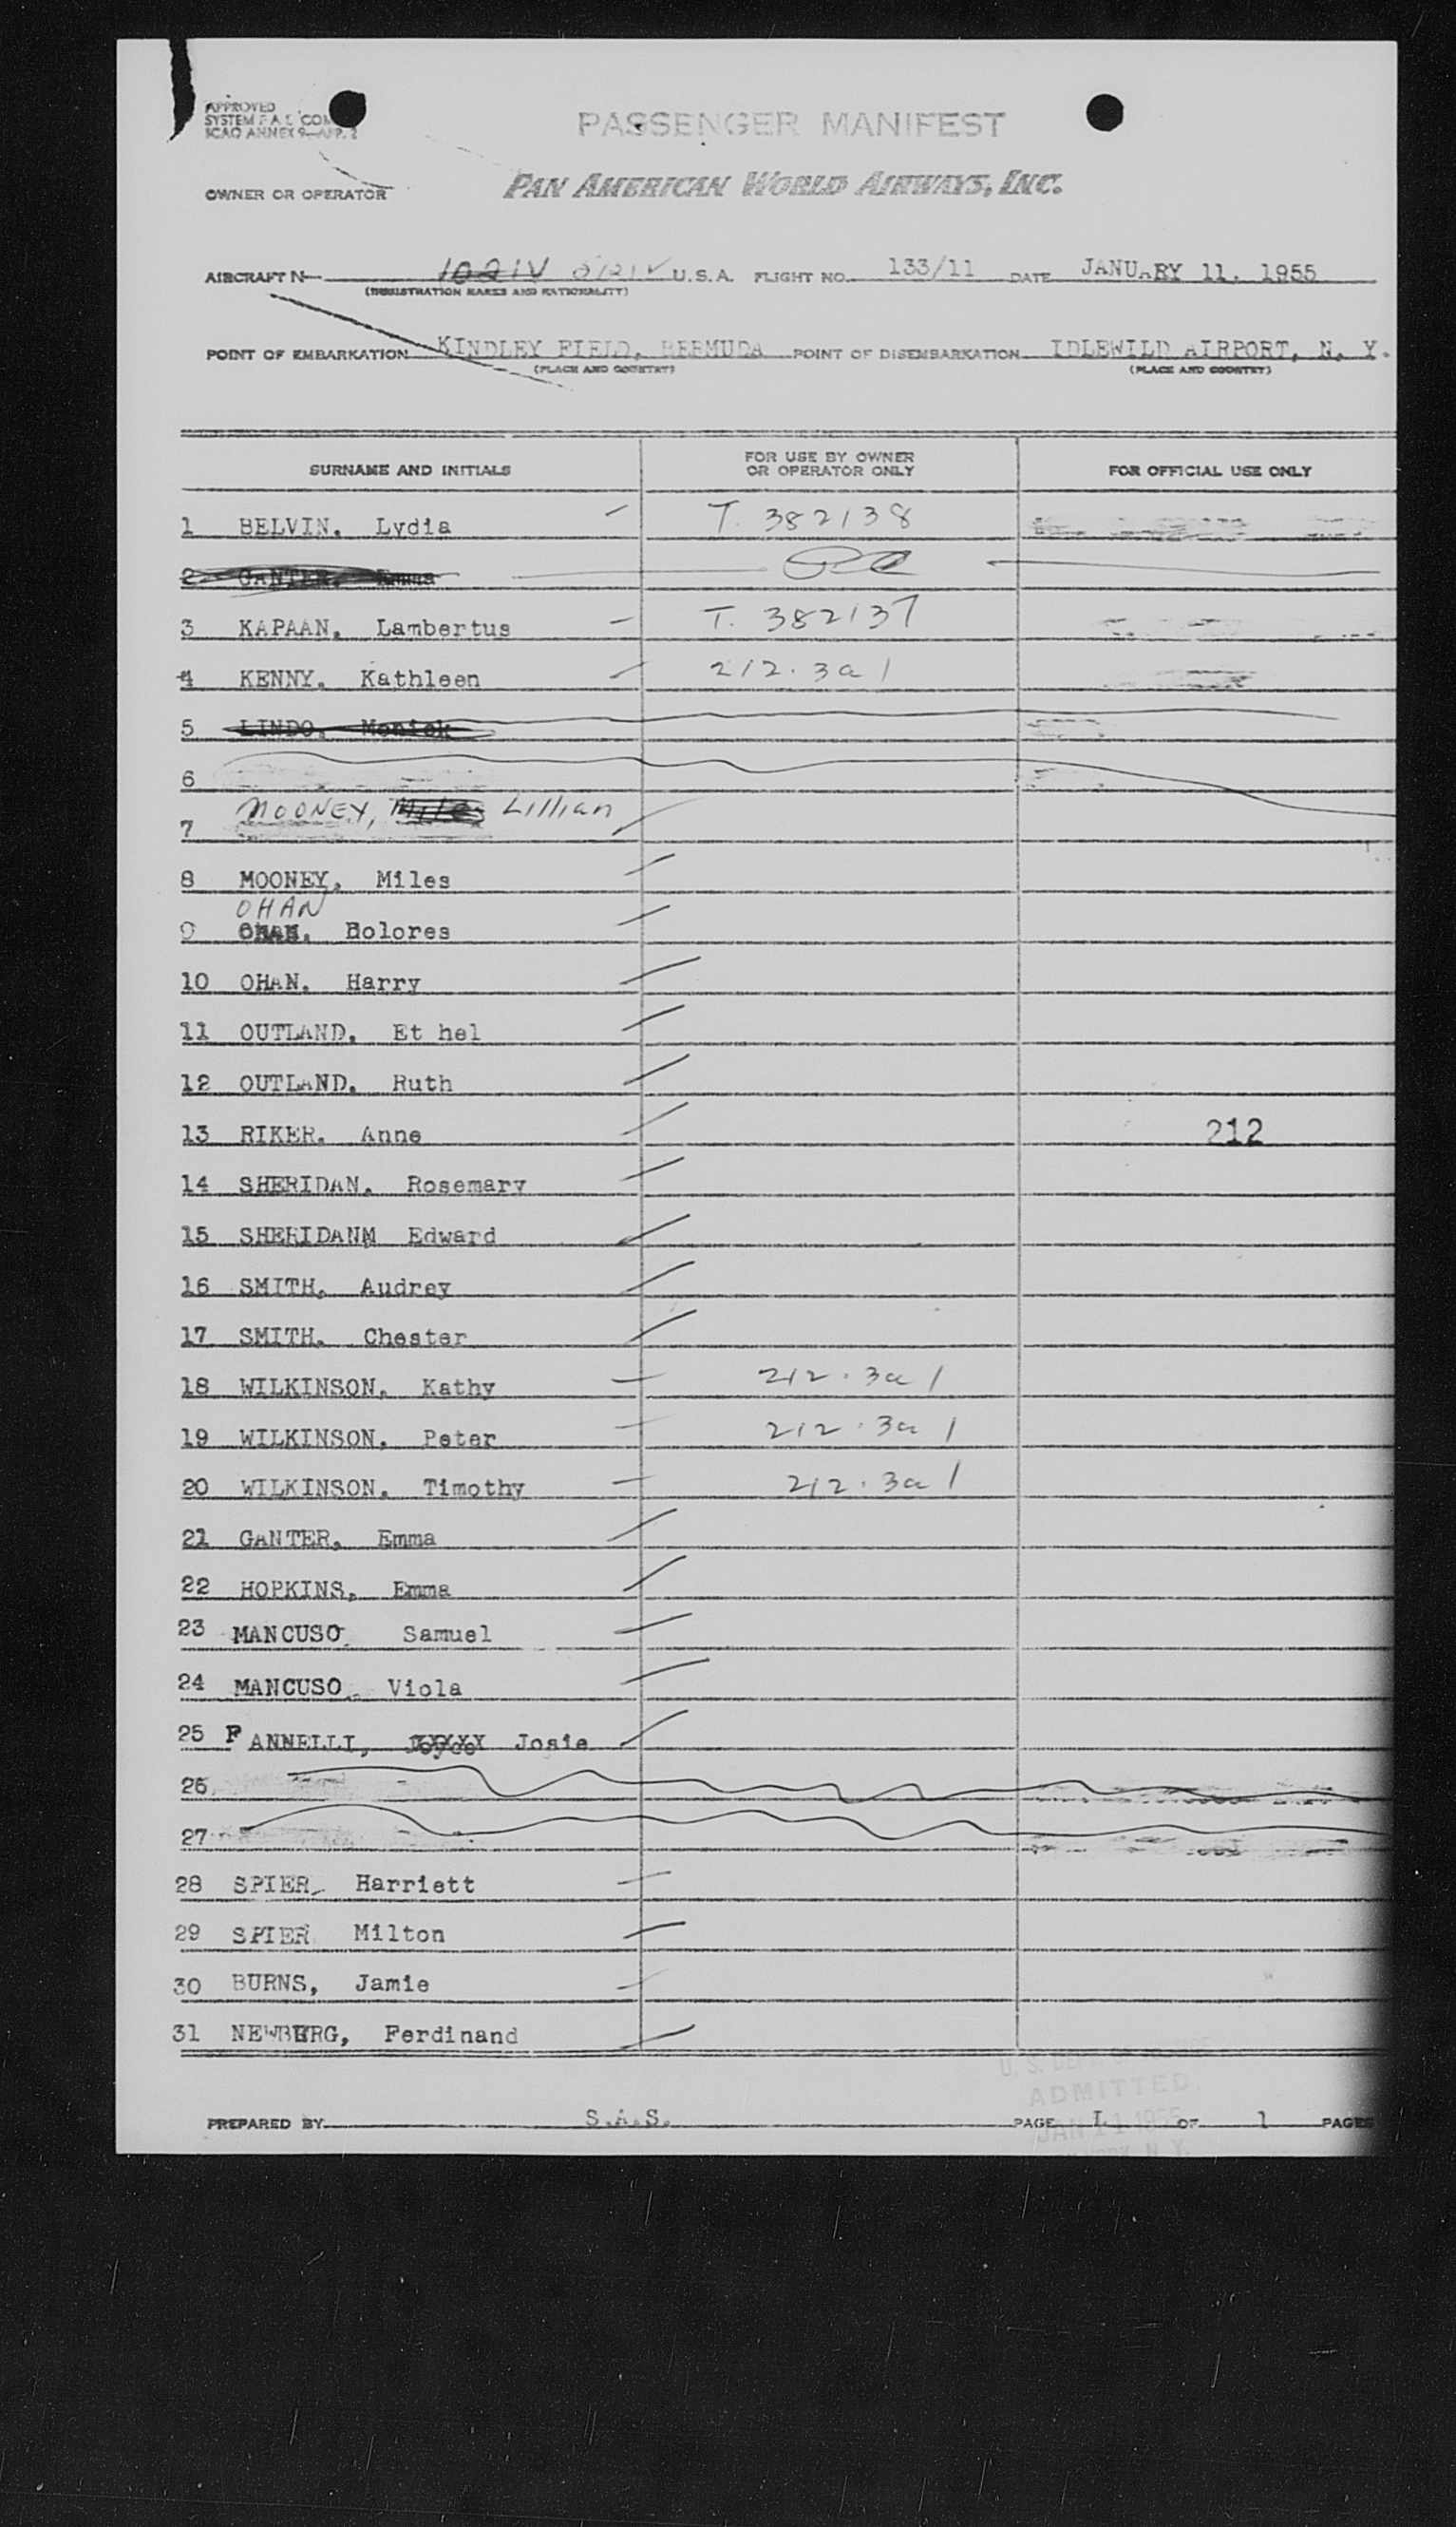 APPROVED
SYSTEM F.A.L. COM
ICAO ANNEX 9-APP. 2
PASSENGER MANIFEST
OWNER OR OPERATOR
PAN AMERICAN WORLD AIRWAYS, INC.
AIRCRAFT N- 1021V U.S.A. FLIGHT NO. 133/11 DATE JANUARY 11, 1955
(REGISTRATION MARKS AND NATIONALITY)
POINT OF EMBARKATION KINDLEY FIELD, BERMUDA POINT OF DISEMBARKATION IDLEWILD AIRPORT, N. Y.
(PLACE AND COUNTRY) (PLACE AND COUNTRY)
SURNAME AND INITIALS FOR USE BY OWNER OR OPERATOR ONLY FOR OFFICIAL USE ONLY
1 BELVIN, Lydia T. 382138
2 GANTER, Emma
3 KAPAAN, Lambertus T. 382137
4 KENNY, Kathleen 212.3a1
5 LINDO, Monick
6
7 MOONEY, Miles Lillian
8 MOONEY, Miles
OHAN
9 OHAN, Dolores
10 OHAN, Harry
11 OUTLAND, Et hel
12 OUTLAND, Ruth
13 RIKER, Anne 212
14 SHERIDAN, Rosemary
15 SHERIDANM Edward
16 SMITH, Audrey
17 SMITH, Chester
18 WILKINSON, Kathy 212.3a1
19 WILKINSON, Peter 212.3a1
20 WILKINSON, Timothy 212.3a1
21 GANTER, Emma
22 HOPKINS, Emma
23 MANCUSO, Samuel
24 MANCUSO, Viola
25 FANNELLI, Joyce Josie
26
27
28 SPIER, Harriett
29 SPIER Milton
30 BURNS, Jamie
31 NEWBERG, Ferdinand
ADMITTED
JAN 11 1955
PREPARED BY S.A.S. PAGE 1 OF 1 PAGES